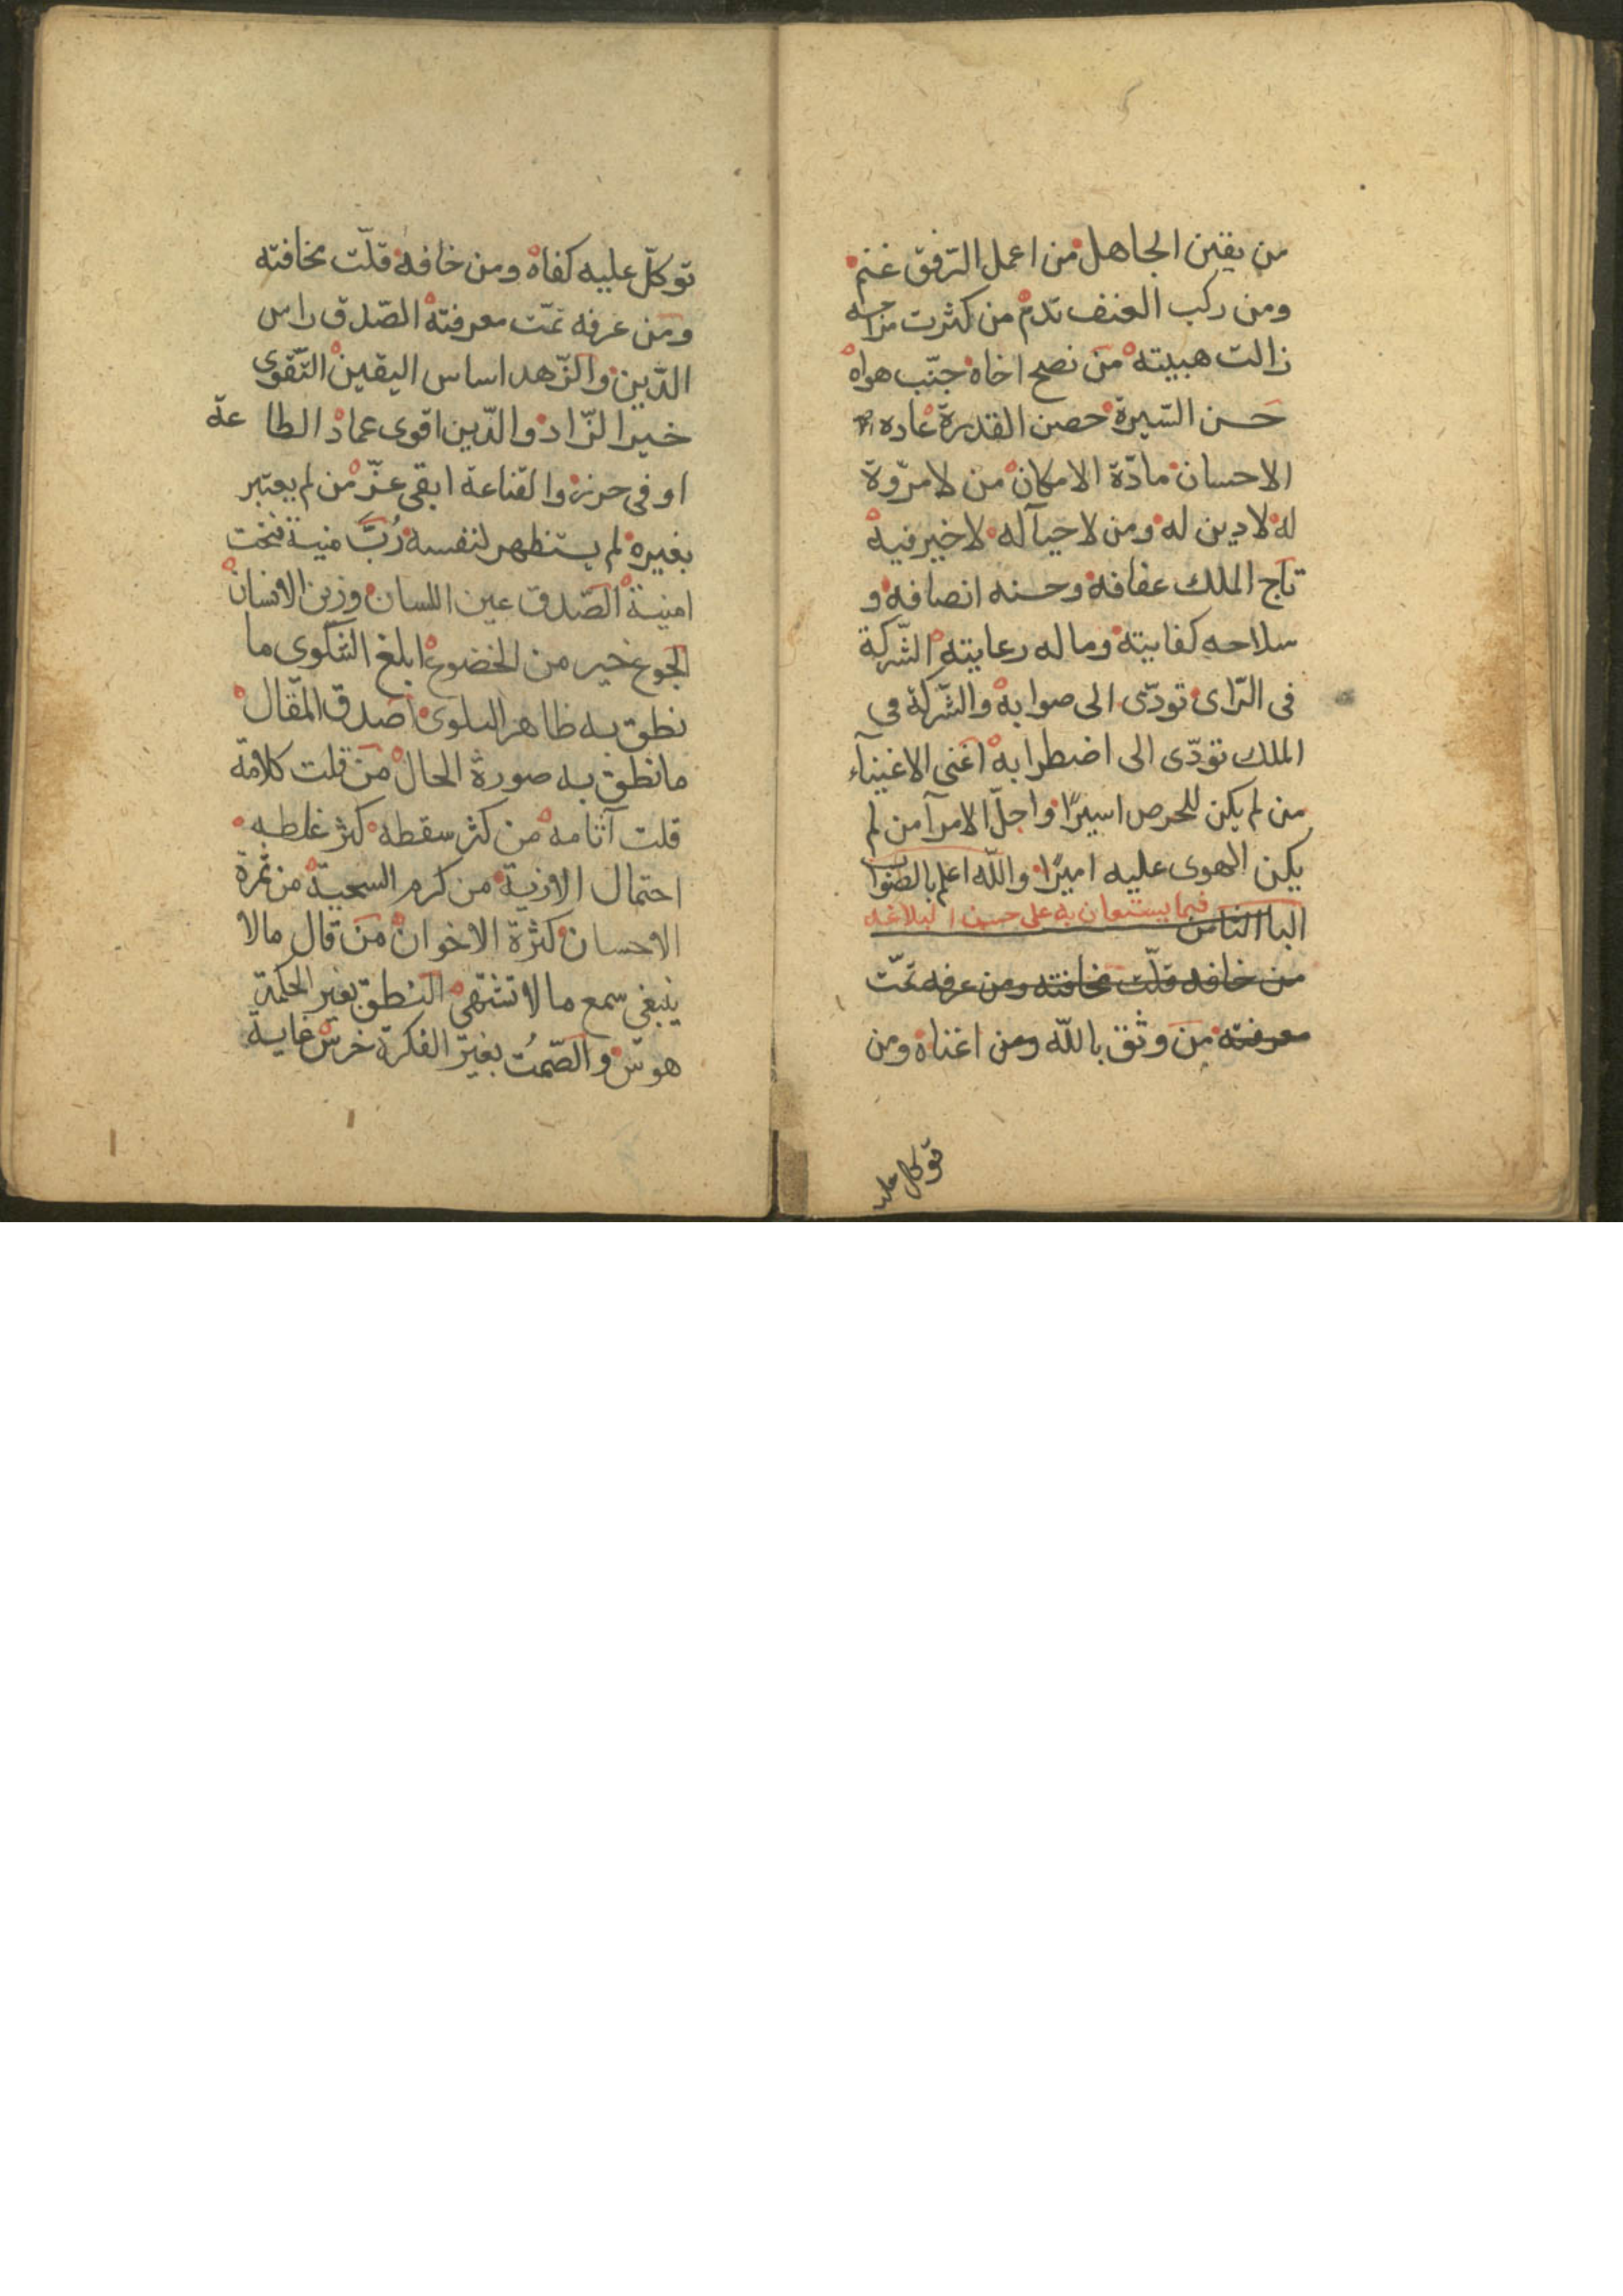 من يقين الجاهل من اعمل الرّفق غنم
ومن ركب العنف ندم من كثرت مزاحه
زالت هيبته من نصح اخاه جنّب هواه
حسن السّيرة حصن القدرة عاده
الاحسان مادّة الامكان من لا مرّوة
له لا دين له ومن لا حيآ له لا خير فيه
تاج الملك عفافه وحسنه انصافه و
سلاحه كفايته وماله رعايته الشّركة
فى الرّاى تودّى الى صوابه والشّركة فى
الملك تودّى الى اضطرابه اغنى الاغنيآء
من لم يكن للحرص اسيرًا واجلّ الامرآ من لم
يكن الهوى عليه اميرًا والله اعلم بالصّواب
البا الثامن فيما يستعان به على حسن البلاغه
من خافه قلّت مخافته ومن عرفه تمّت
معرفته من وثق بالله ومن اغناه ومن
توكل عليه
توكلّ عليه كفاه ومن خافه قلّت مخافته
ومن عرفه تمّت معرفته الصّدق راس
الدّين والزّهد اساس اليقين التّقوى
خير الزّاد والدّين اقوى عماد الطاعة
اوفى حرز والقناعة ابقى عزّ من لم يعتبر
بغيره لم يستظهر لنفسه رُبَّ منية تحت
امنية الصّدق عين اللسان وزين الانسان
الجوع خير من الخضوع ابلغ الشكوى ما
نطق به ظاهر البلوى اصدق المقال
ما نطق به صورة الحال من قلت كلامه
قلت آثامه من كثر سقطه كثر غلطه
احتمال الاذية من كرم السجية من ثمرة
الاحسان كثرة الاخوان من قال مالا
ينبغى سمع مالا تشتهى النطق بغير الحكمة
هوس والصّمتُ بغير الفكرة خرس غاية